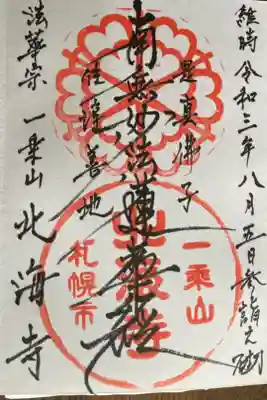 維時 令和三年八月五日参詣之砌
是真佛子
南無妙法蓮華経
住淳善地
法華宗 一乗山 北海寺
一乗山
札幌市